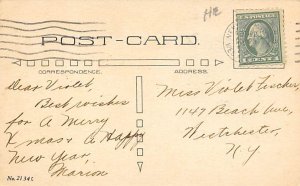 HE
POST-CARD.
CORRESPONDENCE.
ADDRESS.
Dear Violet,
Best wishes
for A Merry
Xmas & A Happy
New Year,
Marion
Miss Violet Fischer,
1147 Beach Ave,
Westchester,
N.Y
No. 2134